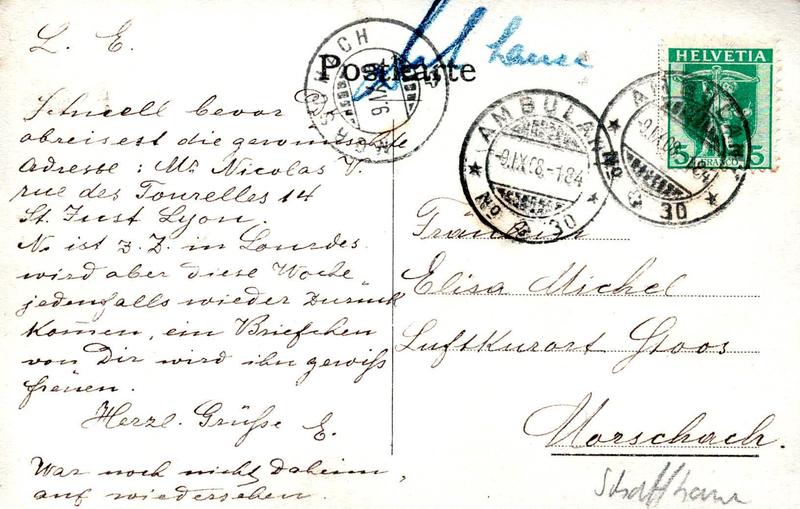 L. E.
Schnell bevor
abreisest die gewünschte
Adresse: Mr Nicolas V.
rue des Tourelles 14
St. Just Lyon.
N. ist z. Z. in Lourdes
wird aber diese Woche
jedenfalls wieder zurück
kommen, ein Briefchen
von Dir wird ihn gewiß
freuen.
Herzl. Grüße E.
War noch nicht daheim,
auf wiedersehen.
Postkarte
HELVETIA
5 FRANCO 5
AMBULANT
-9.IX.08.-184
No 30
AMBULANT
-9.IX.08.-184
No 30
Fräulein
Elisa Michel
Luftkurort Stoos
Morschach.